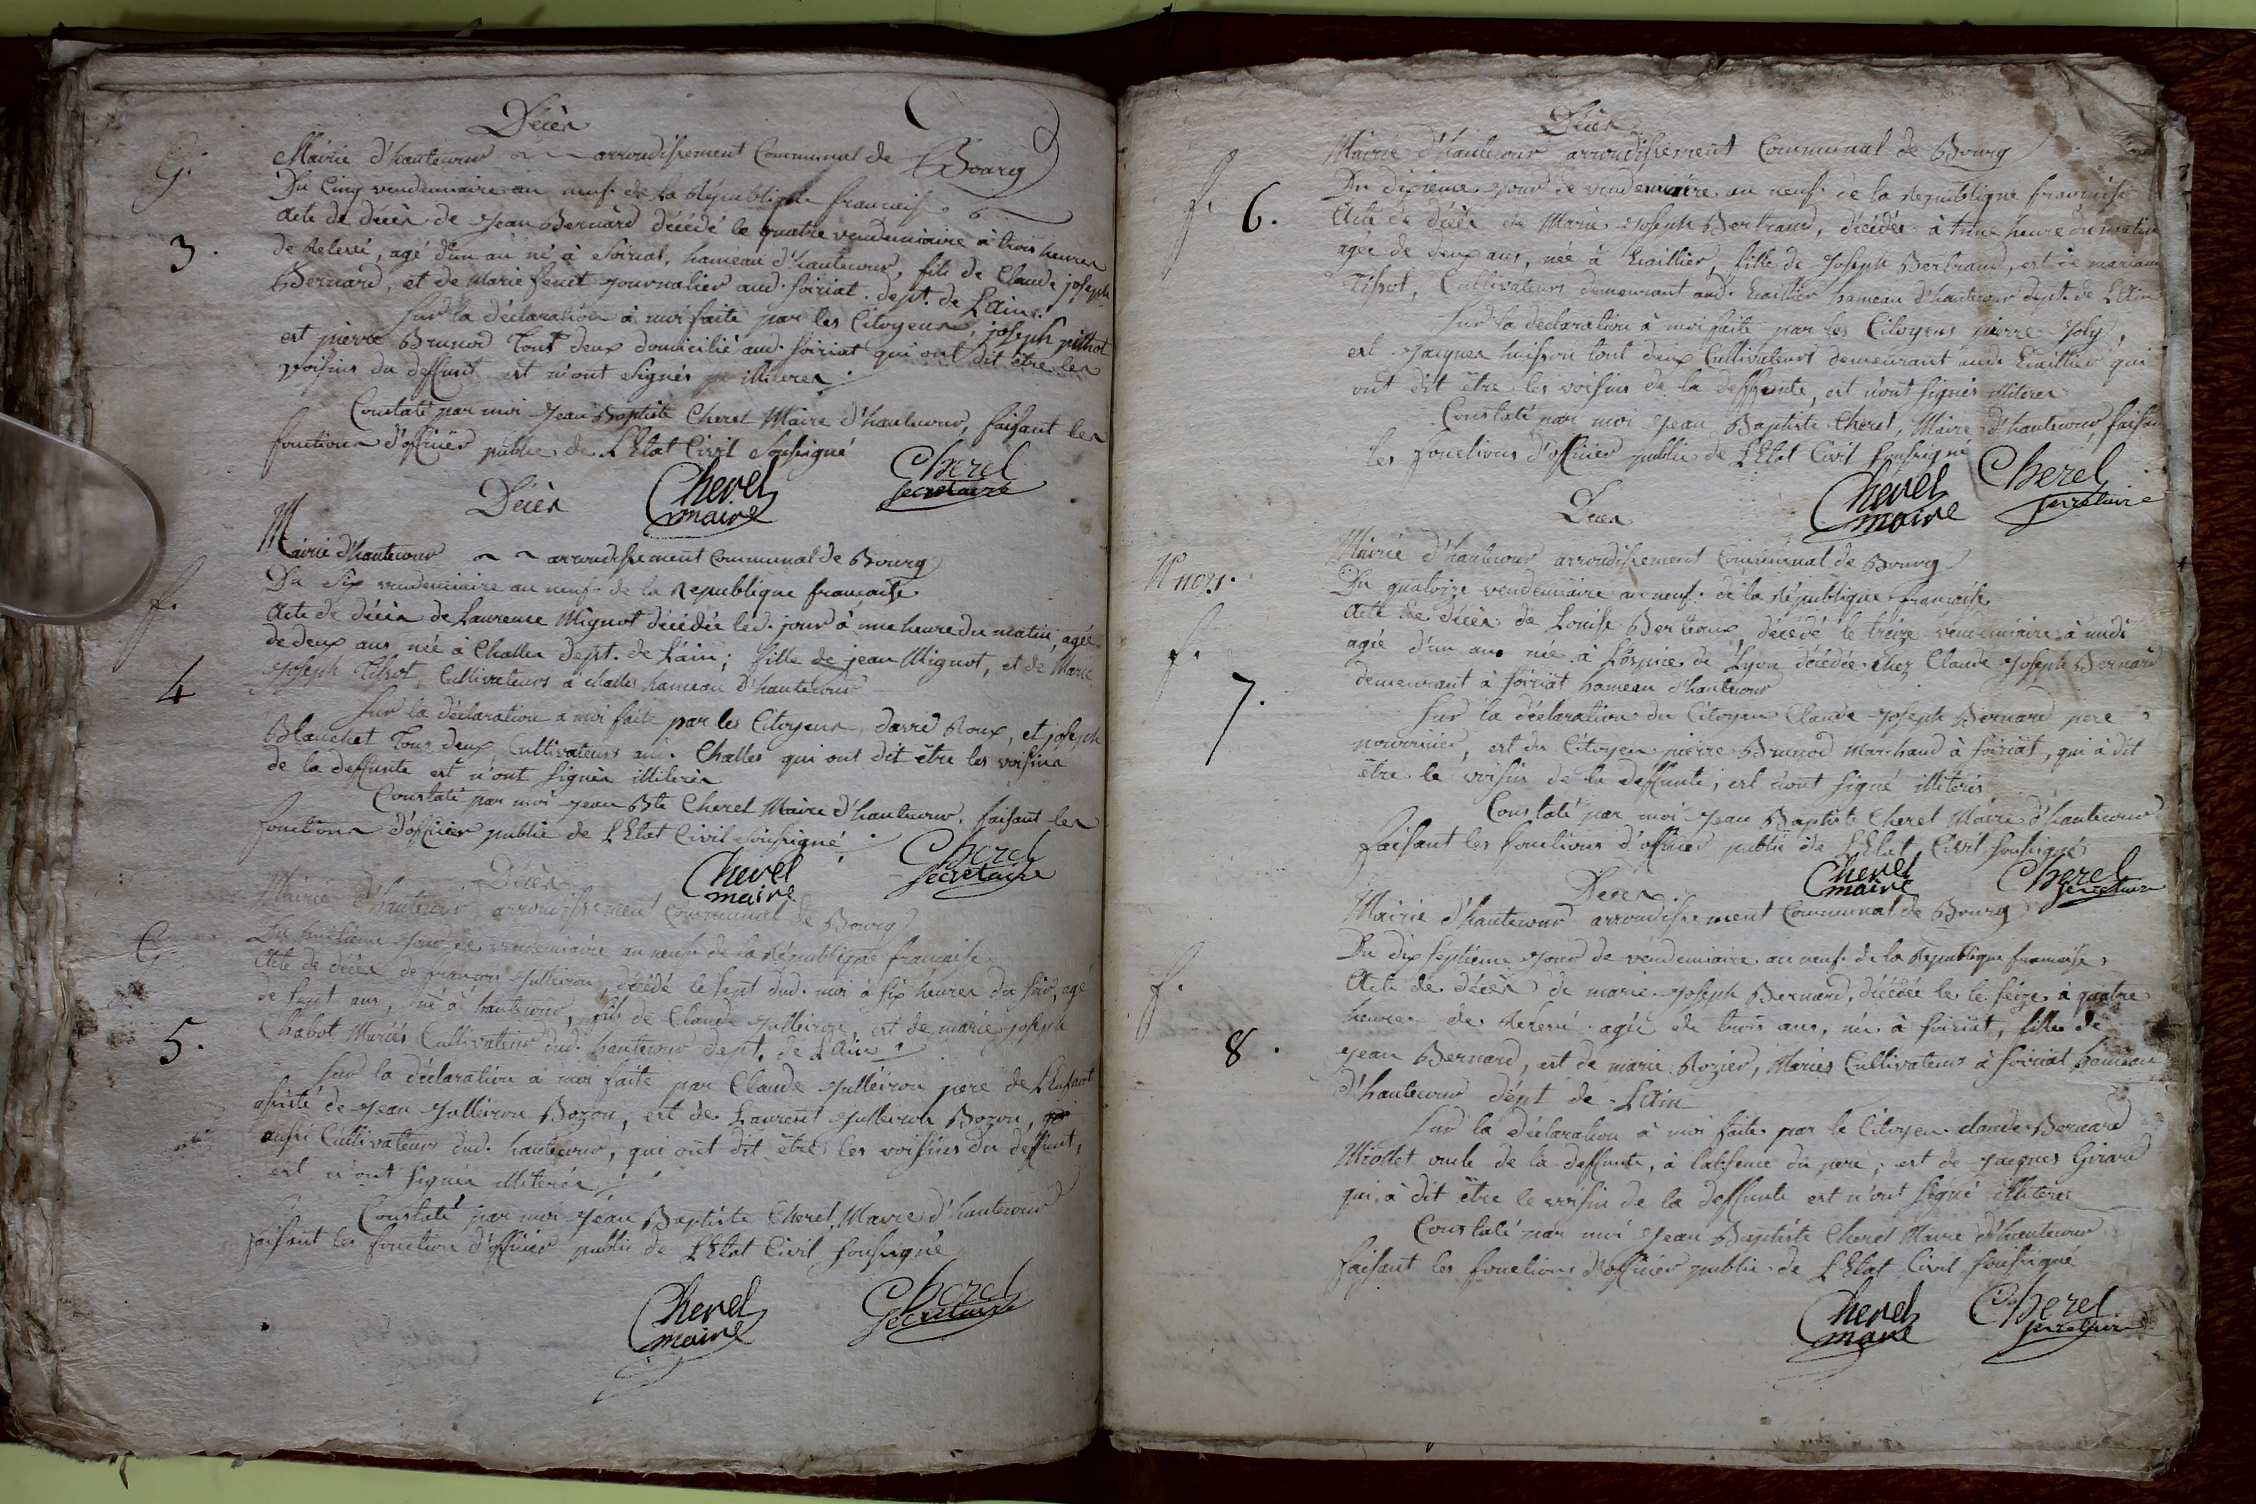 Décès
G. Mairie d'hautecour ~ ~ arrondissement Communal de Bourg
Du Cinq vendemiaire an neuf de la République francaise
Acte de décès de Jean Bernard décédé le quatre vendemiaire à trois heures
3. de Relevé, agé d'un an né à Soiriat, hameau d'hautecour, fils de Claude joseph
Bernard, et de Marie journalier aud. soiriat dept. de L'ain.
Sur la déclaration à moi faite par les Citoyens, joseph pithot
est pierre Brunod tout deux domicilié aud. soiriat qui ont dit être les
voisins du deffunt est n'ont signés illiterés
Constaté par moi Jean Baptiste Cherel Maire d'hautecour, faisant les
fonctions d'officier public de L'Etat Civil Soussigné
Cherel maire
Cherel secretaire
Décès
Mairie d'hautecour ~ ~ arrondissement Communal de Bourg
Du Six vendemiaire an neuf de la Republique francaise
f. Acte de décès de Laurence Mignot décédée led. jour à une heure du matin, agée
de deux ans née à Challes dept. de L'ain; fille de jean Mignot, et de Marie
4 Joseph Tissot, Cultivateurs à challes hameau d'hautecour
Sur la déclaration à moi faite par les Citoyens, david Roux, et joseph
Blanchet Tous deux Cultivateurs aud. Challes qui ont dit être les voisins
de la deffunte est n'ont signés illiterés
Constaté par moi Jean Bte Cherel Maire d'hautecour, faisant les
fonctions d'officier public de L'Etat Civil soussigné
Cherel maire
Cherel secretaire
Décès
Mairie d'hautecour arrondissement Communal de Bourg
G. Du huitieme jour de vendemiaire an neuf de la République francaise
Acte de décès de françois Julleiron, décédé le sept dud. moi à six heures du soir, agé
de sept ans, né à hautecour, fils de Claude Julleiron, est de marie joseph
5. Chabot Mariés Cultivateurs dud. hautecour dept. de L'ain
Sur la déclaration à moi faite par Claude Julleiron pere de L'Enfant
assisté de Jean Julleiron Bozon, est de Laurent Julleiron Bozon,
aussi Cultivateurs dud. hautecour, qui ont dit être les voisins du deffunt,
est n'ont signés illiterés
Constaté par moi Jean Baptiste Cherel, Maire d'hautecour
faisant les fonction d'officier public de L'Etat Civil soussigné
Cherel maire
Cherel secretaire
Décès
Mairie d'hautecour arrondissement Communal de Bourg
f. 6. Du dixieme jour de vendemiaire an neuf de la Republique francaise
Acte de décès de Marie Joseph Bertrand, décédée à une heure du matin
agée de deux ans, née à huillier, fille de Joseph Bertrand, est de mariane
Tissot, Cultivateurs demeurant aud. hameau d'hautecour dept. de L'Ain
Sur la déclaration à moi faite par les Citoyens pierre Joly
est Jacques buisson tout deux Cultivateurs demeurant aud. qui
ont dit être les voisins de la deffunte, est n'ont signés illiterés
Constaté par moi Jean Baptiste Cherel, Maire d'hautecour, faisant
les fonctions d'officier public de L'Etat Civil soussigné
Cherel maire
Cherel secretaire
Décès
Mairie d'hautecour arrondissement Communal de Bourg
Du quatorze vendemiaire an neuf de la République francaise
f. Acte de décès de Louise Berteaux, décédé le treize vendemiaire à midi
agée d'un an née à L'ospice de Lyon décédée chez Claude Joseph Bernard
7. demeurant à soiriat hameau d'hautecour
Sur la déclaration du Citoyen Claude Joseph Bernard pere
nourricier, est du Citoyen pierre Brunod marchand à soiriat, qui à dit
être le voisin de la deffunte, est n'ont signé illiterés
Constaté par moi Jean Baptiste Cherel Maire d'hautecour
faisant les fonctions d'officier public de L'Etat Civil soussigné
Cherel maire
Cherel secretaire
Décès
Mairie d'hautecour arrondissement Communal de Bourg
Du dix septieme jour de vendemiaire an neuf de la Republique francaise
f. Acte de décès de marie Joseph Bernard, décédée le le seize à quatre
heures de Relevé agée de trois ans, née à soiriat, fille de
8. Jean Bernard, est de marie Rozier, Mariés Cultivateurs à soiriat hameau
d'hautecour dépt de L'Ain
Sur la déclaration à moi faite par le Citoyen claude Bernard
Miollet oncle de la deffunte, à labsence du pere, est de Jacques Girard
qui à dit être le voisin de la deffunte est n'ont signé illiterés
Constaté par moi Jean Baptiste Cherel Maire d'hautecour
faisant les fonctions d'officier public de L'Etat Civil soussigné
Cherel maire
Cherel secretaire